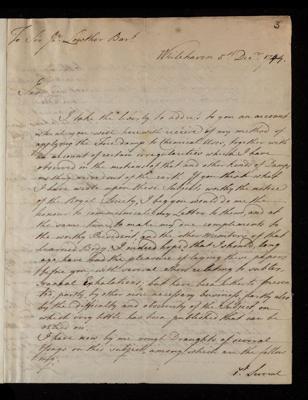 3
To Sir Js. Lowther Bart
Whitehaven 5th Decr. 1744.
Sir
I take the liberty to address to you an account
which you will herewith receive of my method of
applying the Fire Damp to Chemical Uses, together with
an account of certain irregularities which I have
observed in the motions of that and other kinds of Damps
as they arise out of the earth. If you think what
I have wrote upon these Subjects worthy the notice
of the Royal Society, I beg you would do me the
honour to communicate my Letter to them, and at
the same time to make my compliments to
the worthy President and the other Members of that
learned Body. I indeed hoped that I should long
ago have had the pleasure of laying these papers
before you with several others relating to subter-
=raneal Exhalations, but have been hitherto preven-
=ted partly by other more necessary business partly also
by the difficulty and obscurity of the Subject on
which very little has been published that can be
relied on.
I have now by me rough Draughts of several
Essays on this subject, among which are the follow-
=ing.
1st. Several